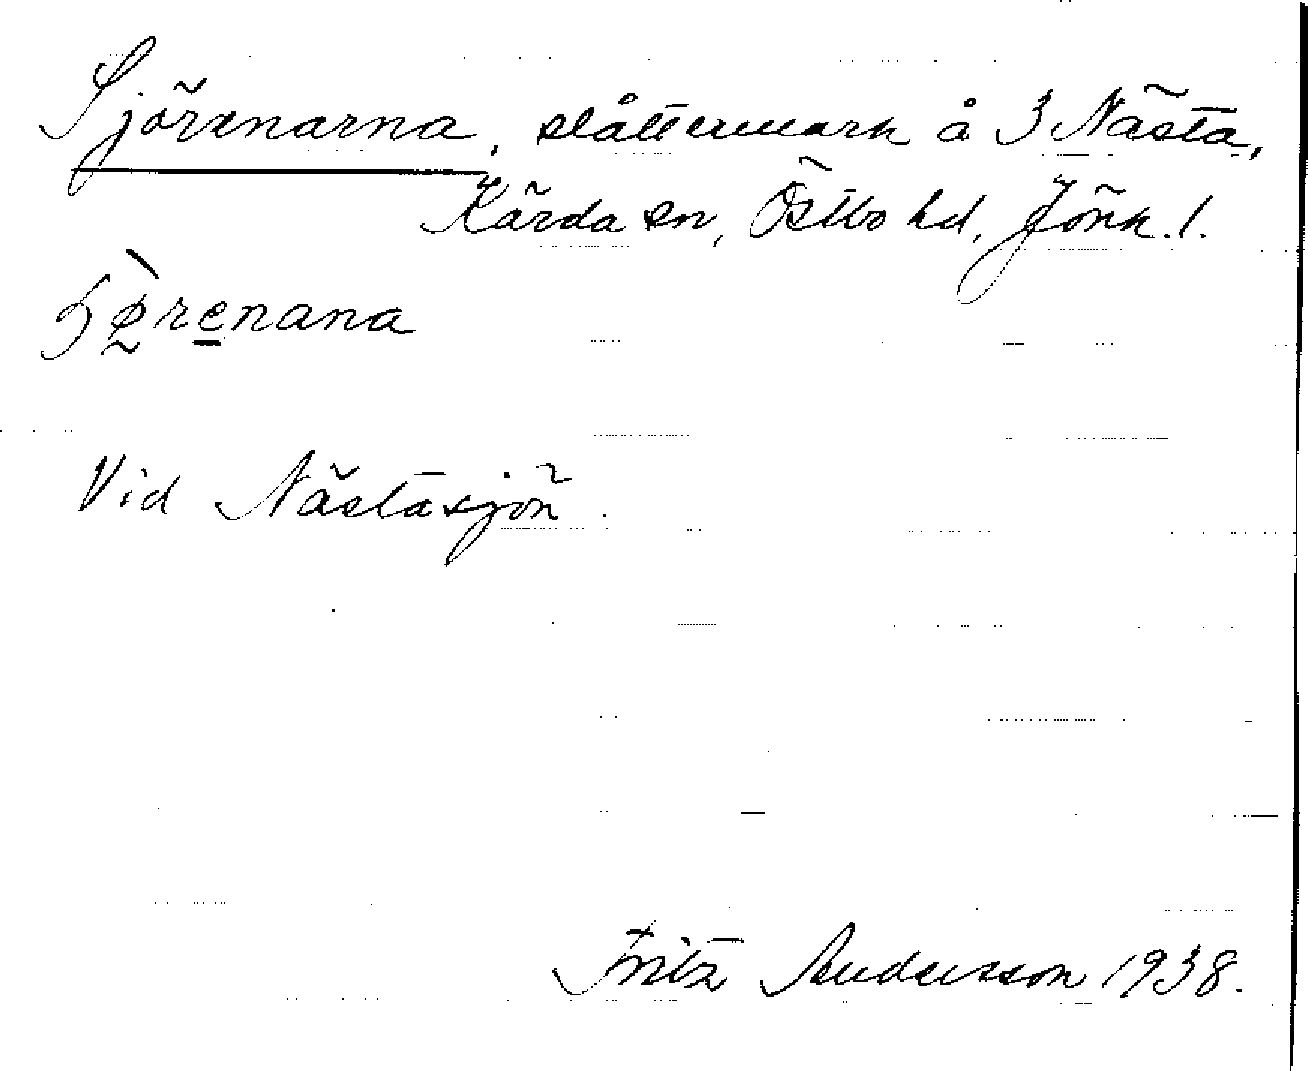 Sjörenarna, slåttermark å 3 Nästa,
Kärda sn, Östbo hd, Jönk. l.
ɧø̀renana
Vid Nästasjön.
Fritz Andersson 1938.